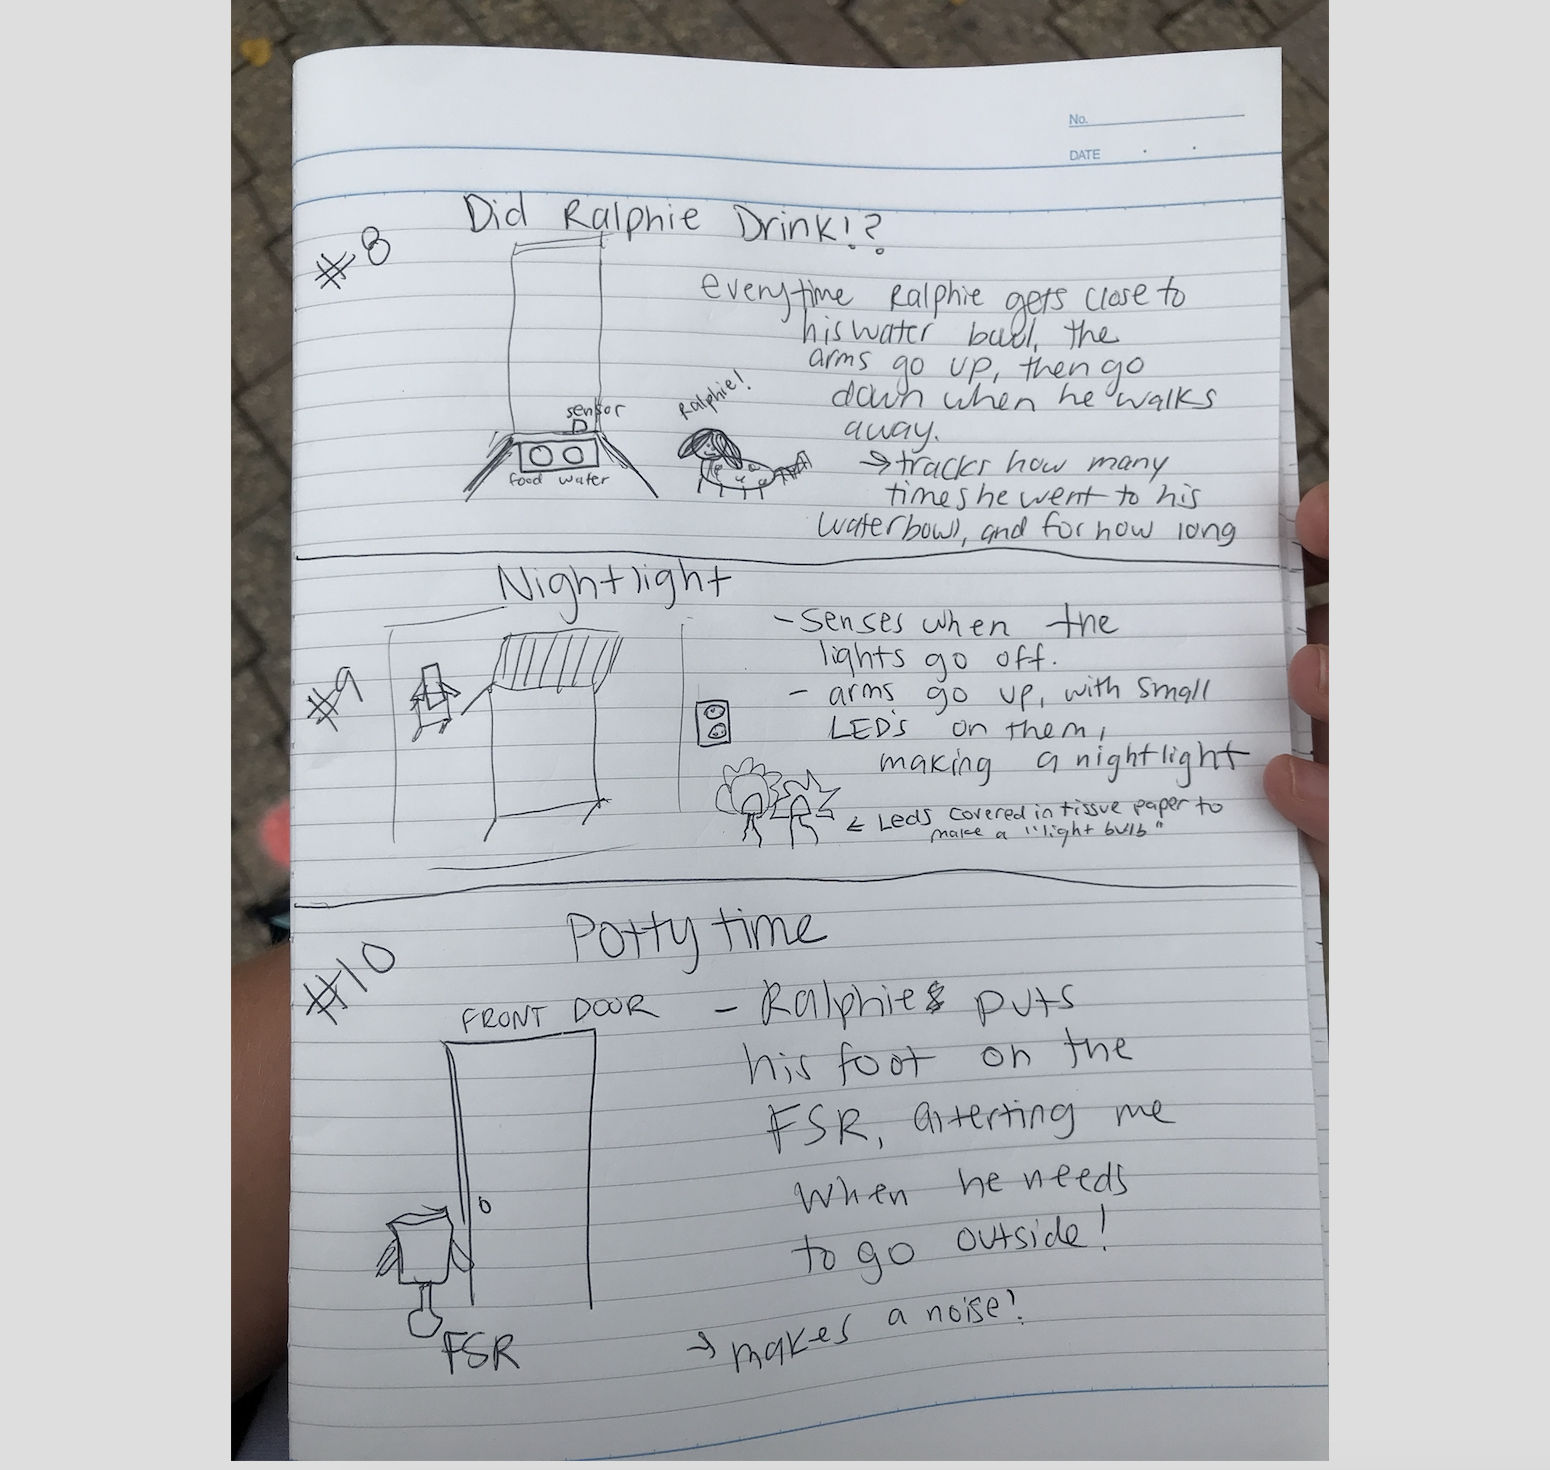 No.
DATE
#8
Did Ralphie Drink!?
everytime Ralphie gets close to
his water bowl, the
arms go up, then go
down when he walks
away.
→ tracks how many
times he went to his
waterbowl, and for how long
sensor
food water
Ralphie!
#9
Nightlight
- senses when the
lights go off.
- arms go up, with small
LED's on them,
making a nightlight
← Leds covered in tissue paper to
make a "light bulb"
#10
Potty time
FRONT DOOR
- Ralphie puts
his foot on the
FSR, alterting me
when he needs
to go outside!
→ makes a noise!
FSR